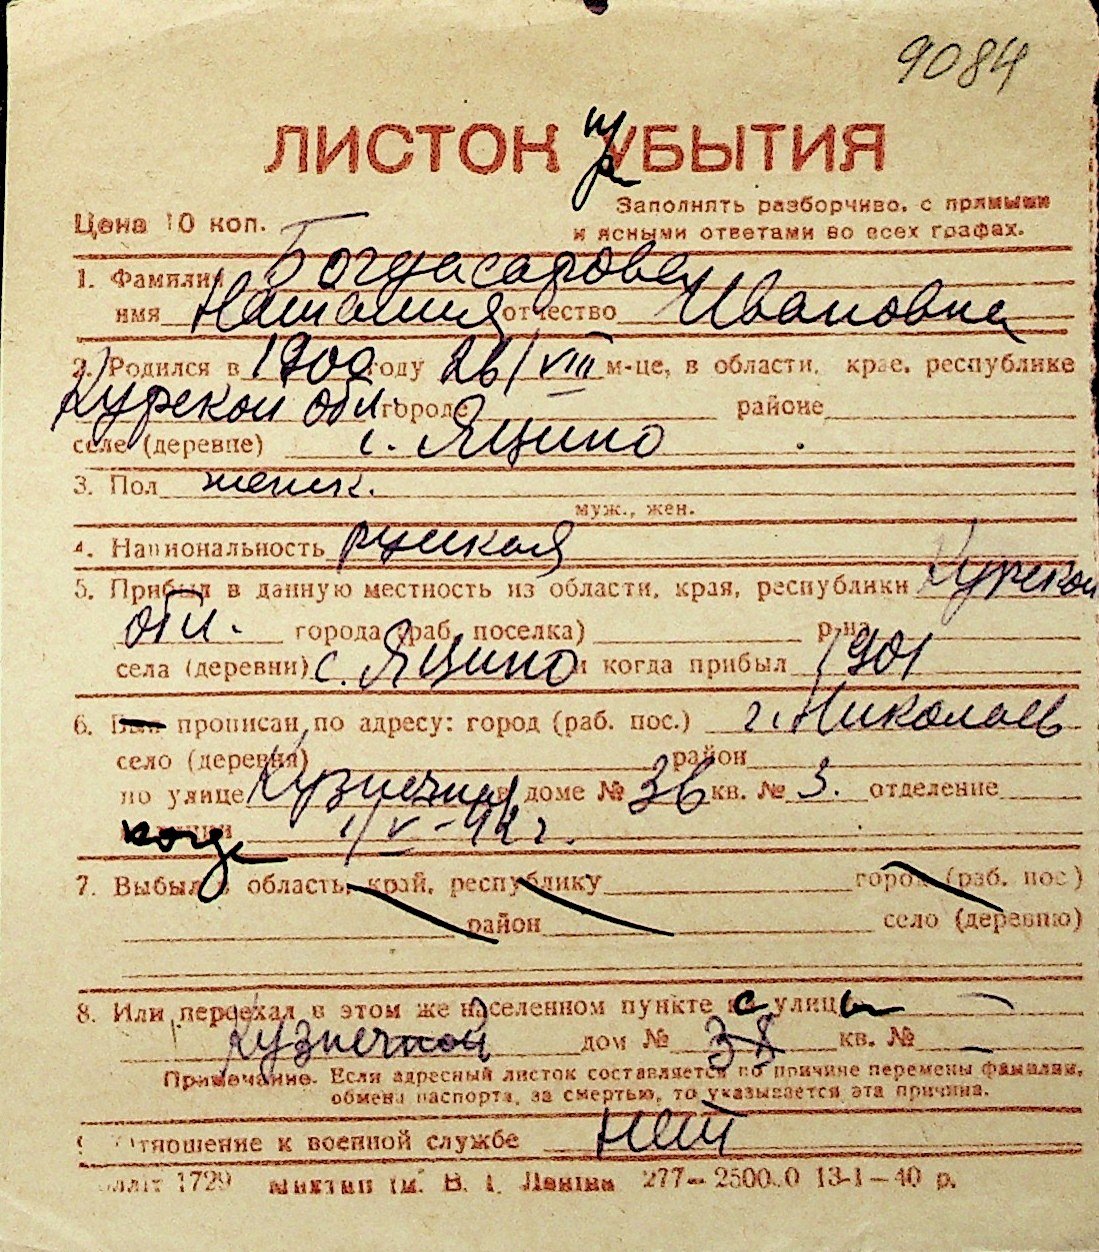 9084
ЛИСТОК пр УБЫТИЯ
Цена 10 коп.
Заполнять разборчиво, с прямыми
и ясными ответами во всех графах.
1. Фамилия Богдасарова
имя Наталия отчество Ивановна
2. Родился в 1900 году 26/VIII м-це, в области, крае, республике
Курской обл. городе районе
селе (деревне) с. Яцино
3. Пол женск.
муж., жен.
4. Национальность русская
5. Прибыл в данную местность из области, края, республики Курской
обл. города (раб. поселка) р-на
села (деревни) с. Яцино и когда прибыл 1901
6. Был прописан по адресу: город (раб. пос.) г. Николаев
село (деревня) район
по улице Кузнечная в доме № 36 кв. № 3. отделение
когда 1/V-44 г.
7. Выбыл в область, край, республику город (раб. пос.)
район село (деревню)
8. Или переехал в этом же населенном пункте с улицы
Кузнечной дом № 38 кв. № —
Примечание. Если адресный листок составляется по причине перемены фамилии,
обмена паспорта, за смертью, то указывается эта причина.
9. Отношение к военной службе нет
1729 В. І. Леніна 277—2500.0 13-1—40 р.